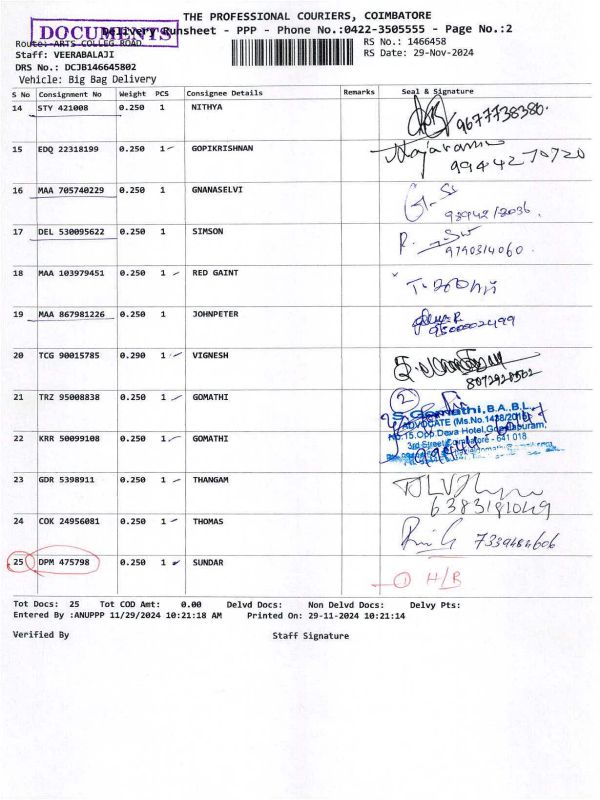 THE PROFESSIONAL COURIERS, COIMBATORE
DOCUMENTS
Delivery Runsheet - PPP - Phone No.:0422-3505555 - Page No.:2
Route: ARTS COLLEG ROAD
RS No.: 1466458
Staff: VEERABALAJI
RS Date: 29-Nov-2024
DRS No.: DCJB146645802
Vehicle: Big Bag Delivery
S No Consignment No Weight PCS Consignee Details Remarks Seal & Signature
14 STY 421008 0.250 1 NITHYA 9677738380.
15 EDQ 22318199 0.250 1 GOPIKRISHNAN
9944270720
16 MAA 705740229 0.250 1 GNANASELVI
17 DEL 530095622 0.250 1 SIMSON
9790314060.
18 MAA 103979451 0.250 1 RED GAINT
19 MAA 867981226 0.250 1 JOHNPETER
20 TCG 90015785 0.290 1 VIGNESH
21 TRZ 95008838 0.250 1 GOMATHI 2
S. Gomathi, B.A.,B.L.,
ADVOCATE (Ms.No.1438/2015)
22 KRR 50099108 0.250 1 GOMATHI
No.15, Opp Deva Hotel, Gopalapuram,
3rd Street, Coimbatore - 641 018
23 GDR 5398911 0.250 1 THANGAM
6383191049
24 COK 24956081 0.250 1 THOMAS 7339484606
25 DPM 475798 0.250 1 SUNDAR
1 H/B
Tot Docs: 25 Tot COD Amt: 0.00 Delvd Docs: Non Delvd Docs: Delvy Pts:
Entered By :ANUPPP 11/29/2024 10:21:18 AM Printed On: 29-11-2024 10:21:14
Verified By Staff Signature